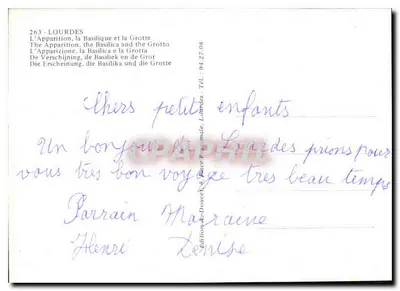 263 - LOURDES
L'Apparition, la Basilique et la Grotte
The Apparition, the Basilica and the Grotto
L'Apparizione, la Basilica e la Grotta
De Verschijning, de Basiliek en de Grot
Die Erscheinung, die Basilika und die Grotte
Chers petits enfants
Un bonjour de Lourdes prions pour
vous très bon voyage très beau temps
Parrain Marraine
Henri Denise
Edition A. Doucet, Place Lourdes - Tél. : 94.27.08